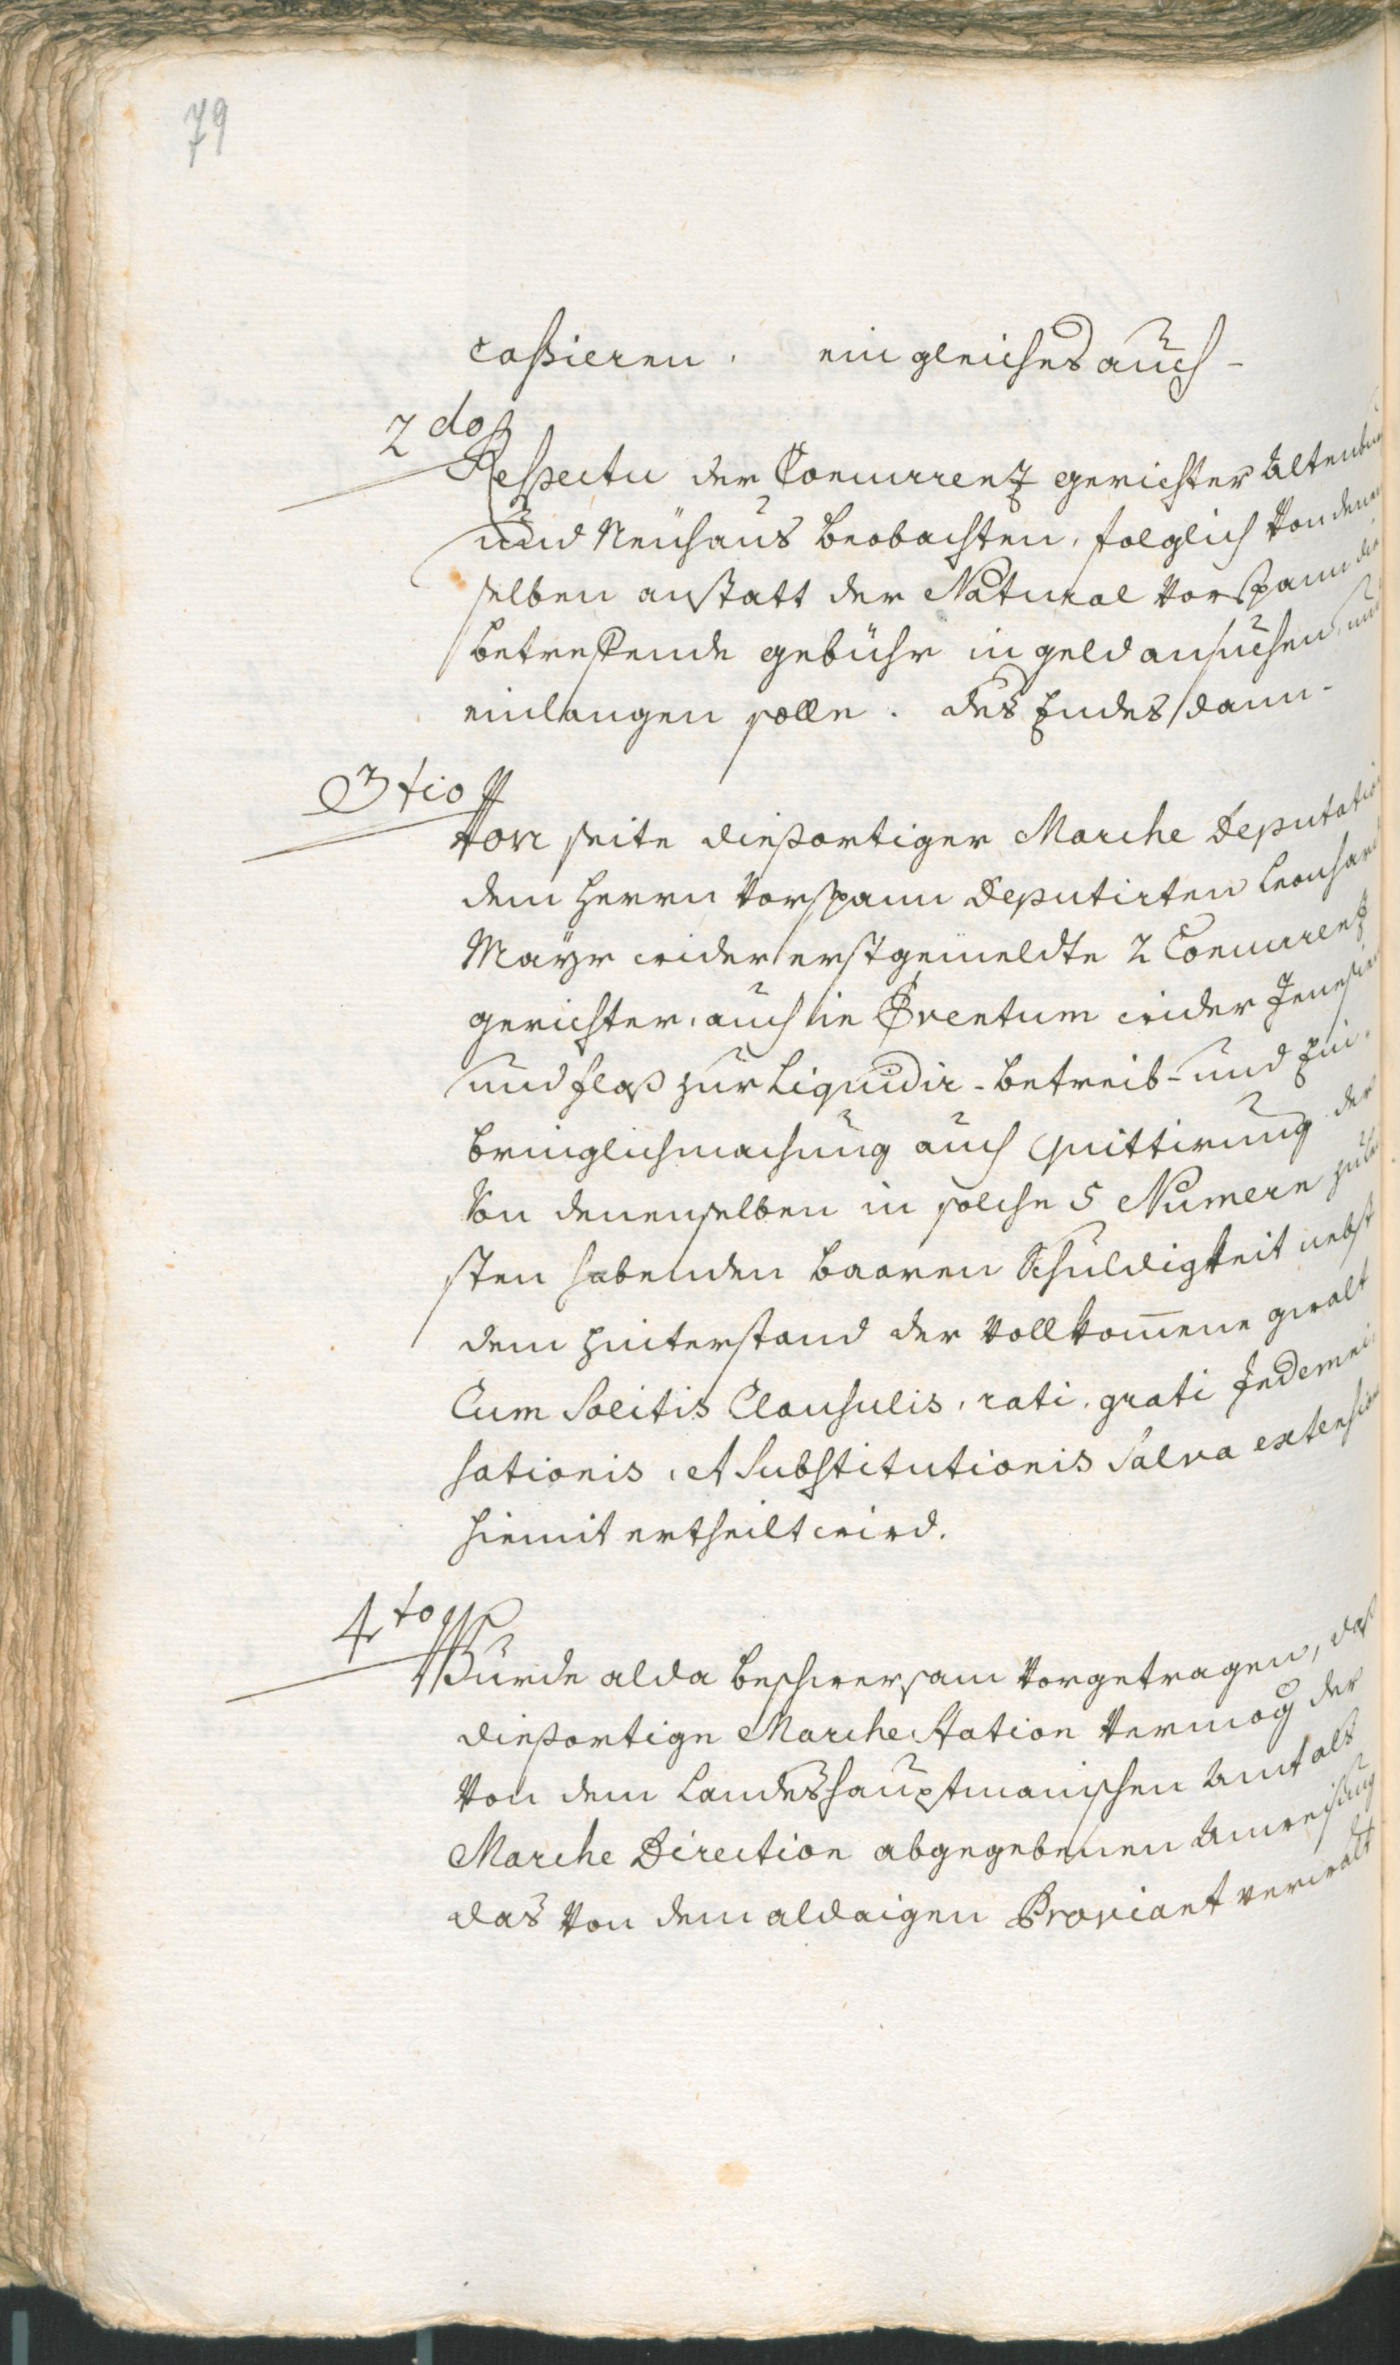 79
cassieren. ein gleiches auch-
2do
Respectu der Concurrenz gerichter Altenbu
und Neuhaus beobachten, folglich von den
selben anstatt der Natural Vorspann die
betreffende gebühr in geld ansuchen, und
einlangen solle. des Endes dann-
3tio
Von seite diesortiger Marche Deputatio
dem herrn Vorspann Deputirten Leonhard
Mayr wider erstgemeldte 2 Concurrenz
gerichter, auch in Eventum wider Jenesien
und flaß zur Liquidir- betreib- und Ein-
bringlichmachung auch quittirung der
von denenselben in solche 5 Numern
sten habenden baaren Schuldigkeit nebst
dem hinterstand der vollkom̅ene gwalt
Cum Solitis Clausulis, rati, grati Indemni
sationis, et Substitutionis Salva extension
hiemit ertheilt wird.
4to
Wurde alda beschwersam vorgetragen, daß
diesortige Marche station vermög der
von dem Landeshauptmanischen Amt als
Marche Direction abgegebenen Anweisung
das von dem aldaigen Proviant verwalt